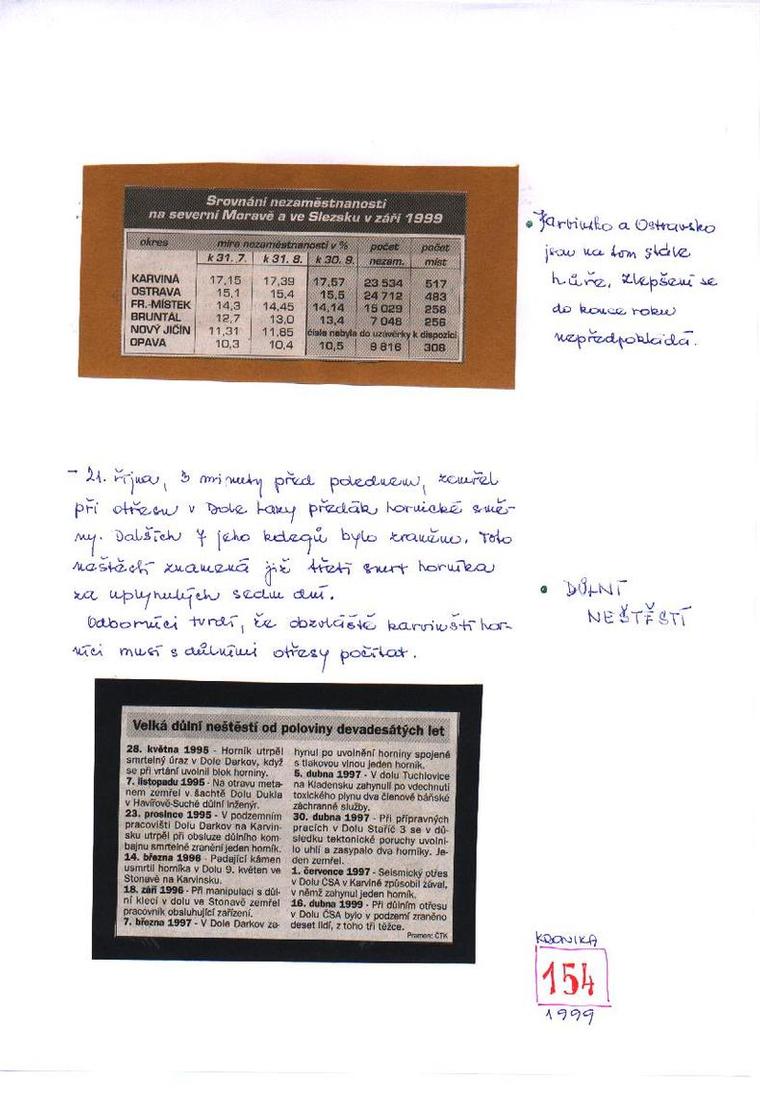 Srovnání nezaměstnanosti
na severní Moravě a ve Slezsku v září 1999
okres míra nezaměstnanosti v % počet počet
k 31. 7. k 31. 8. k 30. 9. nezam. míst
KARVINÁ 17,15 17,39 17,57 23 534 517
OSTRAVA 15,1 15,4 15,5 24 712 483
FR.-MÍSTEK 14,3 14,45 14,14 15 029 258
BRUNTÁL 12,7 13,0 13,4 7 048 256
NOVÝ JIČÍN 11,31 11,85 čísla nebyla do uzávěrky k dispozici
OPAVA 10,3 10,4 10,5 9 816 308
• Karvinsko a Ostravsko
jsou na tom stále
hůře. Zlepšení se
do konce roku
nepředpokládá.
- 21. října, 3 minuty před polednem, zemřel
při otřesu v Dole Lazy předák hornické smě-
ny. Dalších 7 jeho kolegů bylo zraněno. Toto
neštěstí znamená již třetí smrt horníka
za uplynulých sedm dní.
Odborníci tvrdí, že obzvláště karvinští hor-
níci musí s důlními otřesy počítat.
• DŮLNÍ
NEŠTĚSTÍ
Velká důlní neštěstí od poloviny devadesátých let
28. května 1995 - Horník utrpěl
smrtelný úraz v Dole Darkov, když
se při vrtání uvolnil blok horniny.
7. listopadu 1995 - Na otravu meta-
nem zemřel v šachtě Dolu Dukla
v Havířově-Suché důlní inženýr.
23. prosince 1995 - V podzemním
pracovišti Dolu Darkov na Karvin-
sku utrpěl při obsluze důlního kom-
bajnu smrtelné zranění jeden horník.
14. března 1996 - Padající kámen
usmrtil horníka v Dolu 9. květen ve
Stonavě na Karvinsku.
18. září 1996 - Při manipulaci s důl-
ní klecí v dolu ve Stonavě zemřel
pracovník obsluhující zařízení.
7. března 1997 - V Dole Darkov za-
hynul po uvolnění horniny spojené
s tlakovou vlnou jeden horník.
5. dubna 1997 - V dolu Tuchlovice
na Kladensku zahynuli po vdechnutí
toxického plynu dva členové báňské
záchranné služby.
30. dubna 1997 - Při přípravných
pracích v Dolu Staříč 3 se v dů-
sledku tektonické poruchy uvolni-
lo uhlí a zasypalo dva horníky. Je-
den zemřel.
1. července 1997 - Seismický otřes
v Dolu ČSA v Karviné způsobil zával,
v němž zahynul jeden horník.
16. dubna 1999 - Při důlním otřesu
v Dolu ČSA bylo v podzemí zraněno
deset lidí, z toho tři těžce.
Pramen: ČTK
KRONIKA
154
1999